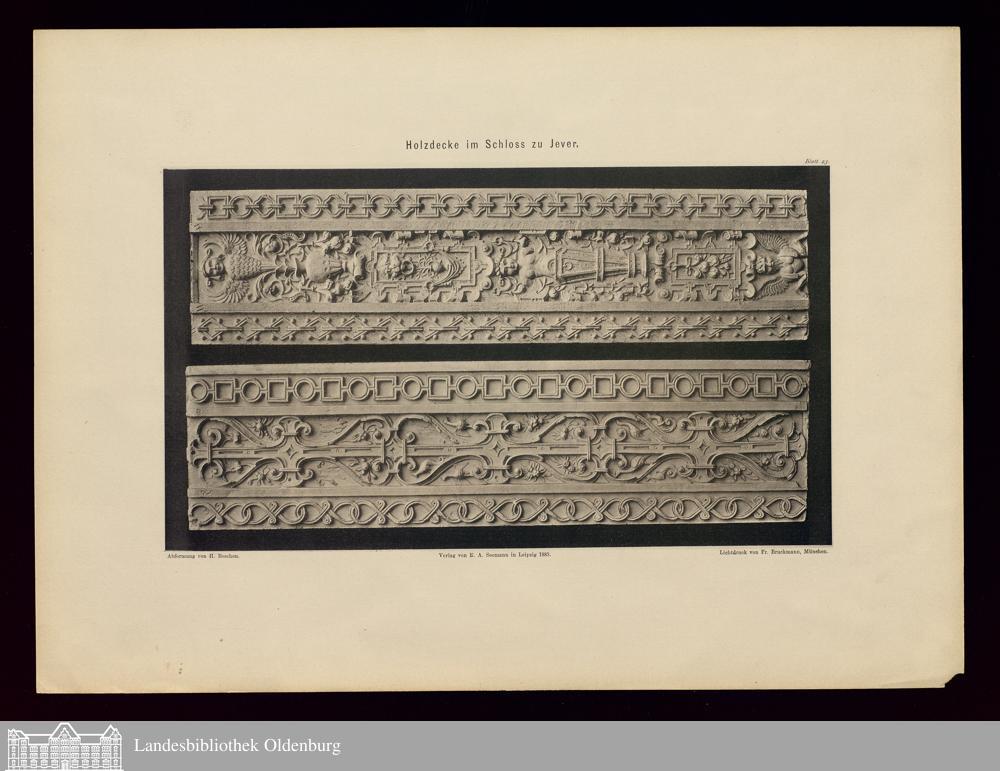 Holzdecke im Schloss zu Jever.
Blatt 23.
Abformung von H. Boschen.
Verlag von E. A. Seemann in Leipzig 1883.
Lichtdruck von Fr. Bruckmann, München.
Landesbibliothek Oldenburg